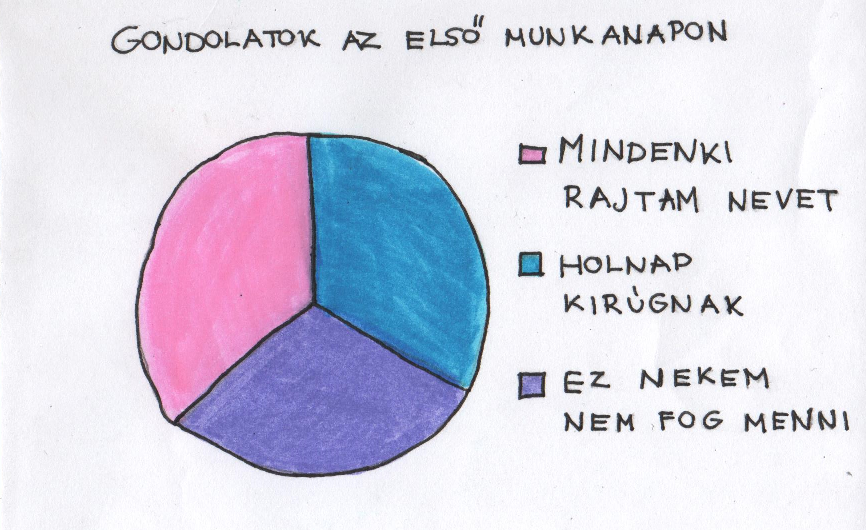 GONDOLATOK AZ ELSŐ MUNKANAPON
MINDENKI
RAJTAM NEVET
HOLNAP
KIRÚGNAK
EZ NEKEM
NEM FOG MENNI